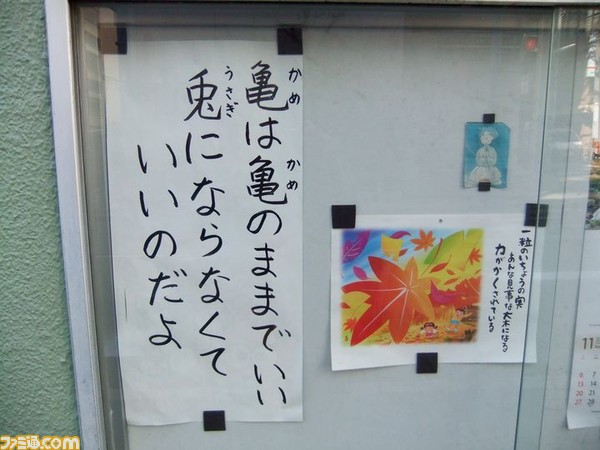 亀は亀のままでいい
かめ かめ
兎にならなくて
うさぎ
いいのだよ
一粒のいちょうの実
あんな見事な大木になる
力がかくされている
11
6 7
13 14
20 21
27 28
ファミ通.com